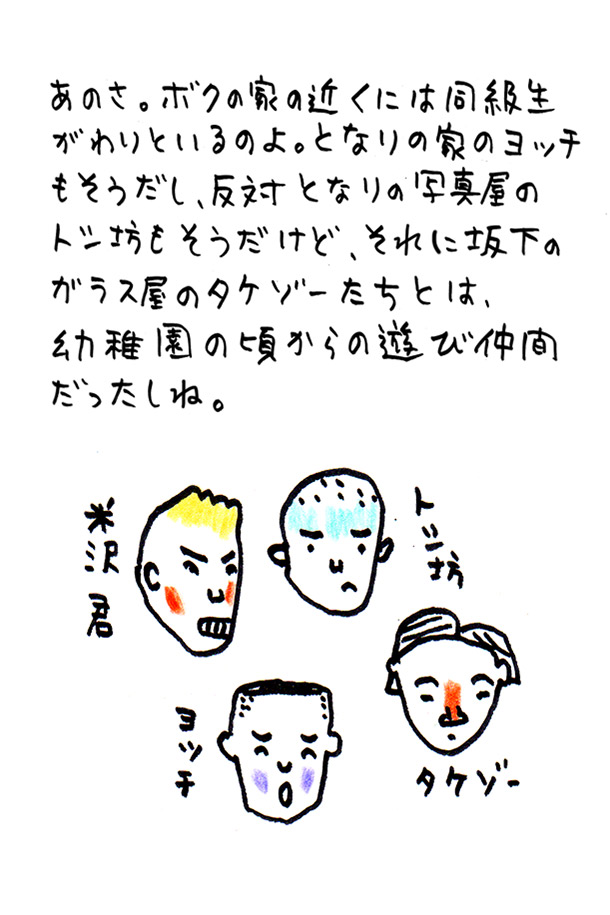 あのさ。ボクの家の近くには同級生
がわりといるのよ。となりの家のヨッチ
もそうだし、反対となりの写真屋の
トシ坊もそうだけど、それに坂下の
ガラス屋のタケゾーたちとは、
幼稚園の頃からの遊び仲間
だったしね。
米沢君
トシ坊
ヨッチ
タケゾー